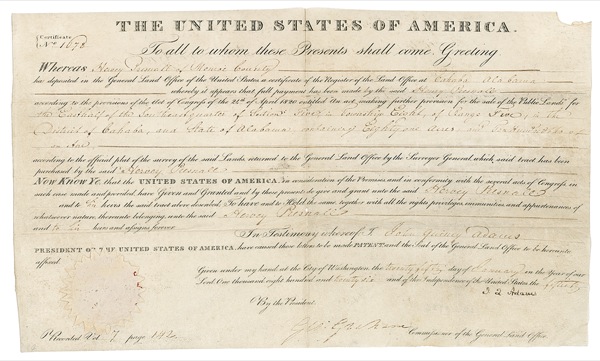 THE UNITED STATES OF AMERICA.
Certificate
No. 1678
To all to whom these Presents shall come, Greeting
WHEREAS Harvey of Monroe County
has deposited in the General Land Office of the United States a certificate of the Register of the Land Office at Cahaba Alabama
whereby it appears that full payment has been made by the said
according to the provisions of the Act of Congress of the 24th of April 1820 entitled An act, making further provision for the sale of the Public Lands for
the East half of the Southeast quarter of Section Five, in Township Eight, of Range Five, in the
District of Cahaba, and State of Alabama, containing Eighty one Acres and
of an Acre,
according to the official plat of the survey of the said Lands, returned to the General Land Office by the Surveyor General, which said tract has been
purchased by the said Harvey
NOW KNOW YE, that the UNITED STATES OF AMERICA, in consideration of the Premises and in conformity with the several acts of Congress in
such case made and provided, have Given and Granted and by these presents do give and grant unto the said Harvey
and to his heirs the said tract above described: To have and to Hold the same, together with all the rights, privileges, immunities, and appurtenances of
whatsoever nature thereunto belonging, unto the said Harvey
and to his heirs and assigns forever.
In Testimony whereof, I John Quincy Adams
PRESIDENT OF THE UNITED STATES OF AMERICA, have caused these letters to be made PATENT and the Seal of the General Land Office to be hereunto
affixed.
Given under my hand at the City of Washington, the twenty fifth day of January in the Year of our
Lord One thousand eight hundred and twenty six and of the Independence of the United States the fiftieth
J. Q. Adams
By the President:
Geo: Graham Commissioner of the General Land Office.
Recorded Vol. 7 page 142